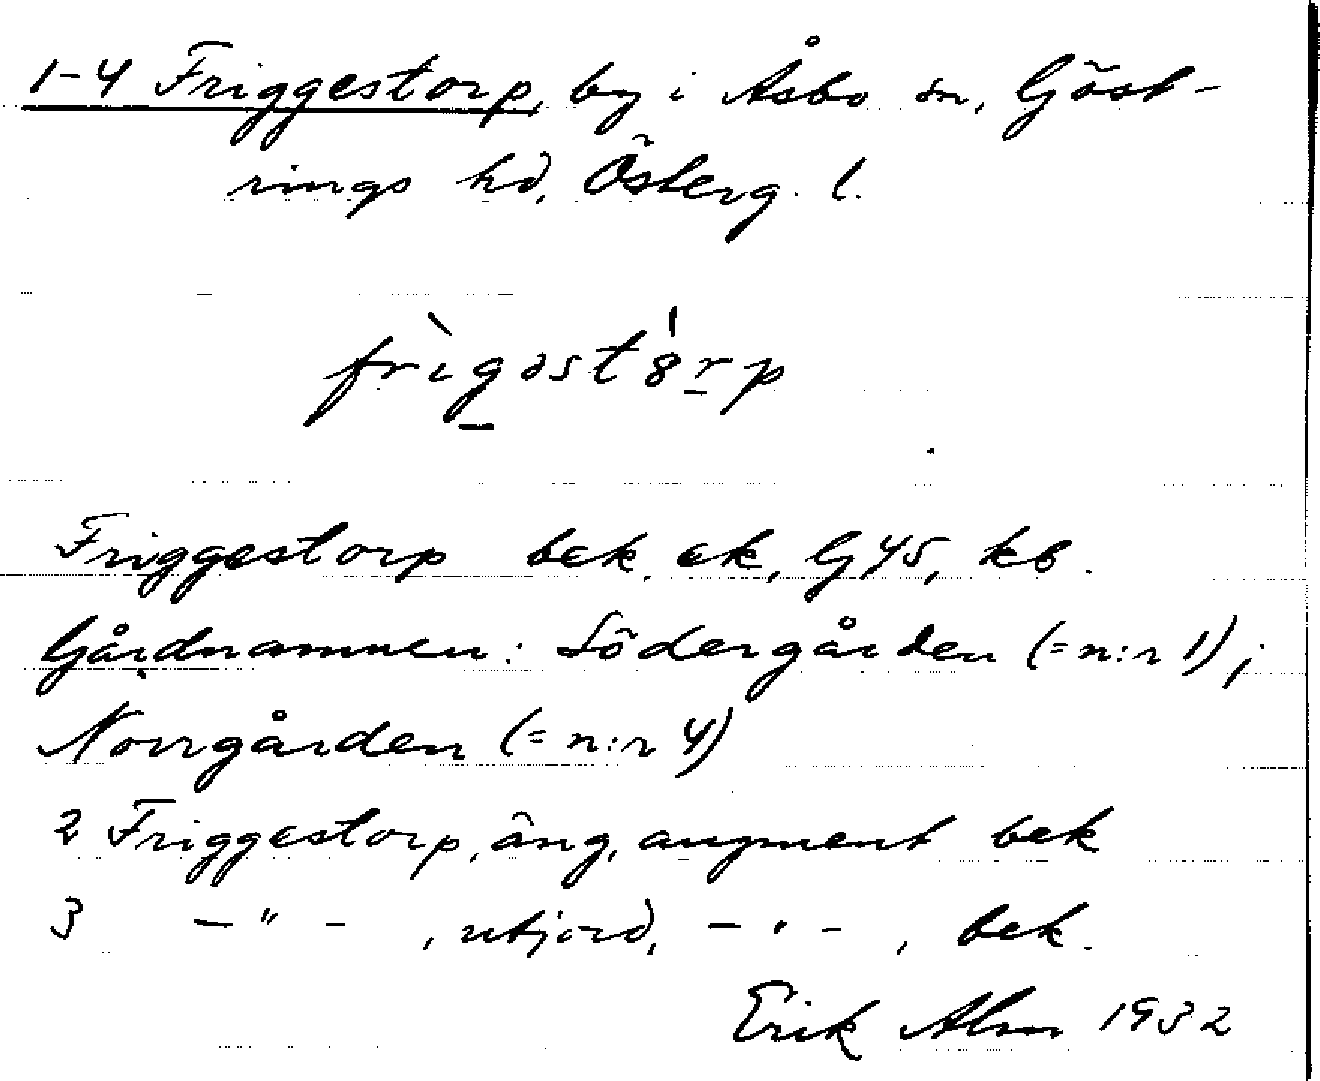 1-4 Friggestorp, by i Åsbo sn, Göst-
rings hd, Österg. l.
frìgəst8́rp
Friggestorp bek. ek, G45, kb.
Gårdnamnen: Södergården (=n:r 1);
Norrgården (= n:r 4)
2 Friggestorp, äng, augment bek
3 -"- , utjord, -"- , bek.
Erik Alm 1932